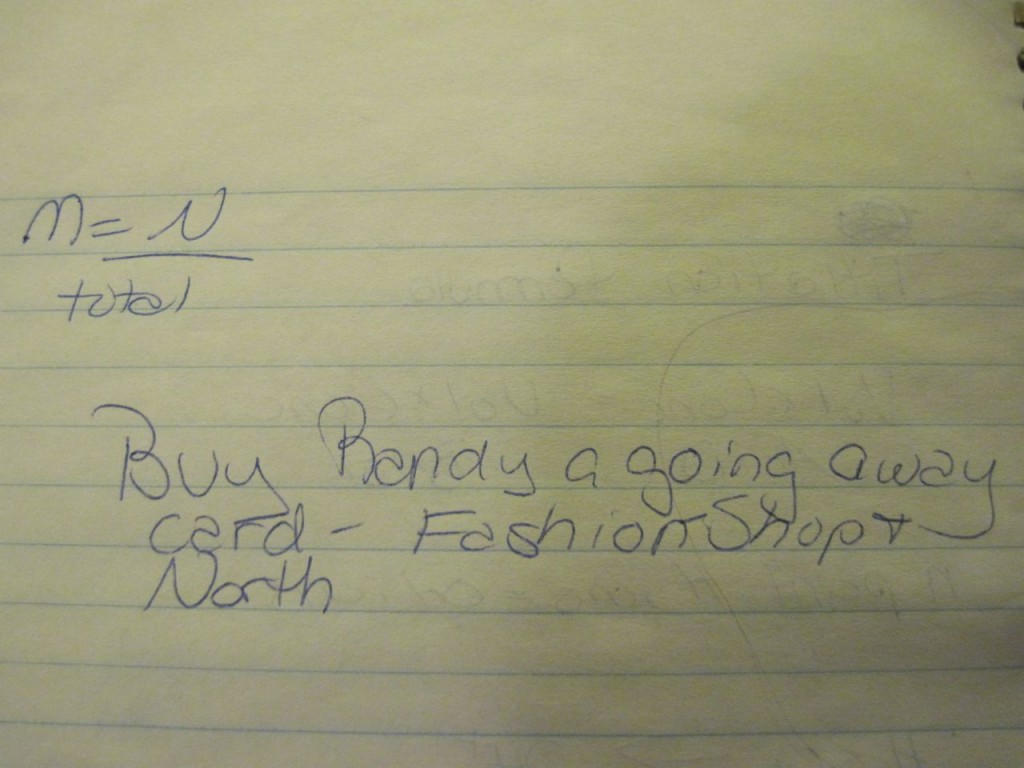 M = N
total
Buy Randy a going away
card - Fashion Shop +
North